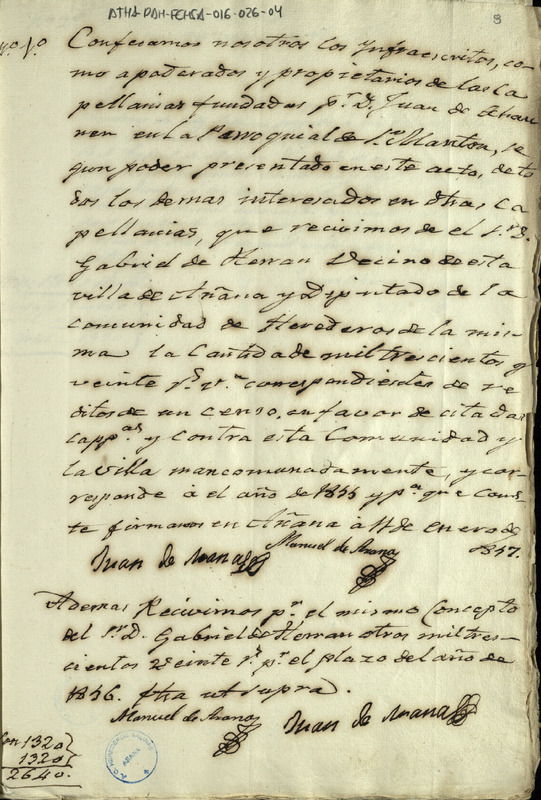 ATHA-DAH-FCHSA-016-026-04
8
Nº 1º
Confesamos nosotros los Infraescritos, co-
mo apoderados y propietarios de las Ca
pellanias fundadas pr. D. Juan de
en la Parroquial de Sn. Martin, se
gun poder presentado en este acto, de to
dos los demas interesados en dhas. Ca
pellanias, que recivimos de el Sr. D.
Gabriel de Herran Vecino de esta
villa de Añana y Diputado de la
comunidad de Herederos de la mis-
ma la Cantidad de mil trescientos y
veinte rs. vn. correspondientes de re
ditos de un censo, en favor de citadas
Capps. y contra esta Comunidad y
la villa mancomunadamente, y cor-
responde á el año de 1845 y pa. que cons-
te firmamos en Añana á 11 de Enero de
1847.
Juan de Arana
Manuel de Arana
Ademas Recivimos pr. el mismo Concepto
del Sr. D. Gabriel de Herran otros mil tres-
cientos veinte rs. pr. el plazo del año de
1846. fha ut supra.
Manuel de Arana
Juan de Arana
Son 1320
1320
2640.
AÑANA